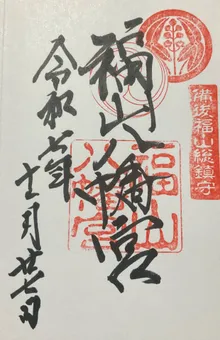 備後福山総鎮守
福山八幡宮
令和七年
十二月廿七日
福山八幡宮